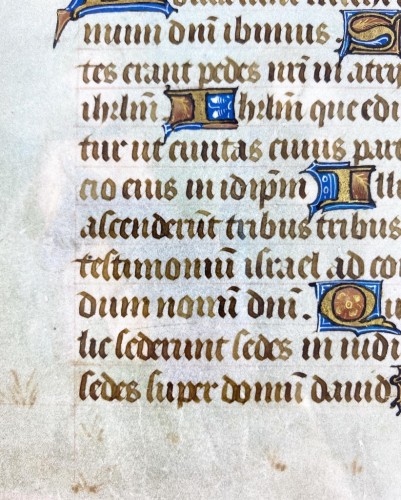 mum dñi ibimus. S
tes erant pedes nr̃i in atri
ihrlm̃ Ihrlm̃ que edi
tur ut ciuitas cuius part
cio eius in idip̃m Ill
ascenderũt tribus tribus
testimoniũ israel ad con
dum nomĩ dñi. Qu
lic sederunt sedes in iudi
sedes super domũ dauid